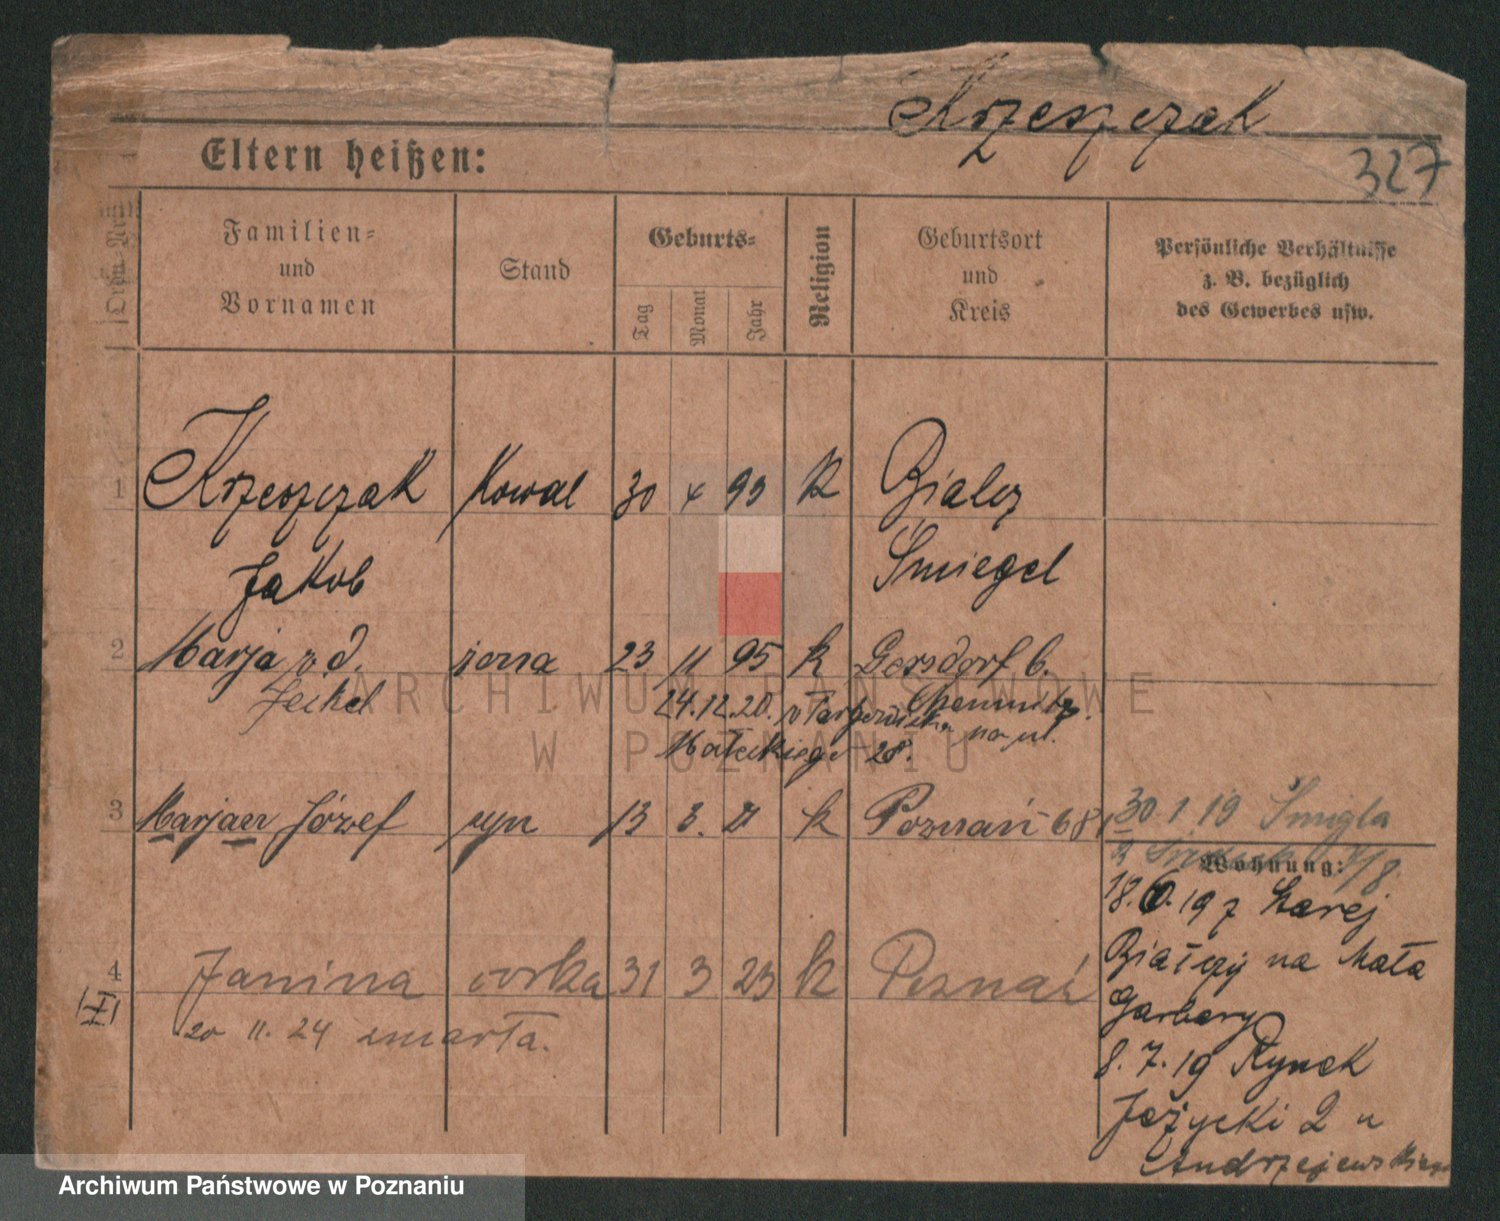 Krzeszczak
327
Eltern heißen:
Ordn.-Nr.
Familien-
und
Vornamen
Stand
Geburts-
Tag
Monat
Jahr
Religion
Geburtsort
und
Kreis
Persönliche Verhältnisse
z. B. bezüglich
des Gewerbes usw.
1 Krzeszczak Kowal 30 4 93 k Bialcz
Jakob Śmiegel
2 Marja z d. żona 23 11 95 k Gersdorf b.
Jeckel Chemnitz.
24.12.20. na ul.
Małeckiego 28.
3 Marjan Józef syn 13 3. 21 k Poznań 681
30 1 19 Śmigla
Wohnung:
18.6.19 z Starej
Białczy na Mała
Garbary
8.7.19 Rynek
Jeżycki 2 u
Andrzejewskiego
4 Janina córka 31 3 23 k Poznań
20 11. 24 zmarła.
ARCHIWUM PAŃSTWOWE
W POZNANIU
Archiwum Państwowe w Poznaniu